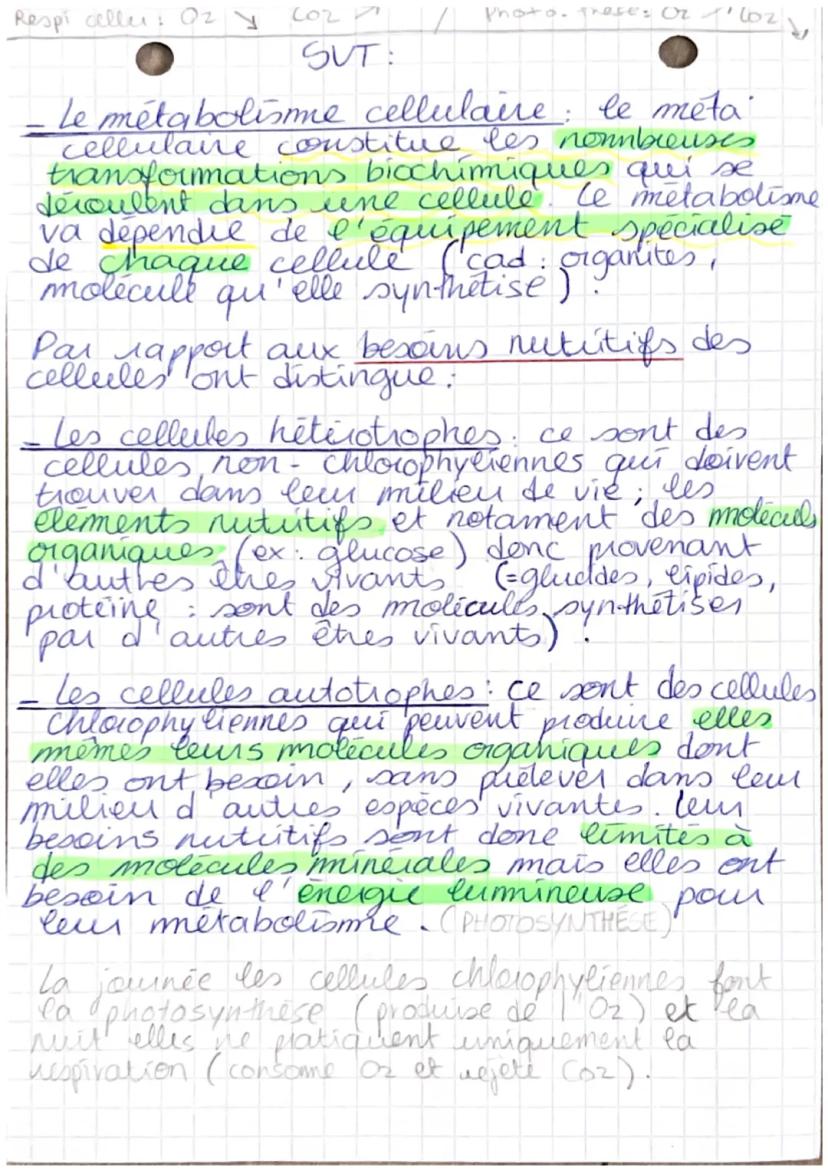 Respi cellu : O2 ↘ CO2 ↗ / Photo. thèse : O2 ↗ CO2 ↘
SVT :
- Le métabolisme cellulaire : le méta
cellulaire constitue les nonnbreuses
transformations biochimiques qui se
déroulent dans une cellule. Le métabolisme
va dépendre de l'équipement spécialisé
de chaque cellule (cad : organites,
molécule qu'elle synthétise).
Par rapport aux besoins nutritifs des
cellules ont distingue :
- Les cellules hétérotrophes : ce sont des
cellules non-chlorophyliennes qui doivent
trouver dans leur milieu de vie ; les
éléments nutritifs et notament des molécules
organiques (ex : glucose) donc provenant
d'autres êtres vivants (= glucides, lipides,
protéine : sont des molécules synthétisés
par d'autres êtres vivants).
- Les cellules autotrophes : ce sont des cellules
chlorophyliennes qui peuvent produire elles
mêmes leurs molécules organiques dont
elles ont besoin, sans prélever dans leur
milieu d'autres espèces vivantes. leur
besoins nutritifs sont donc limités à
des molécules minérales mais elles ont
besoin de l'énergie lumineuse pour
leur métabolisme. (PHOTOSYNTHÈSE)
La journée les cellules chlorophyliennes font
la photosynthèse (produise de l'O2) et la
nuit elles ne pratiquent uniquement la
respiration (consome O2 et rejète CO2).